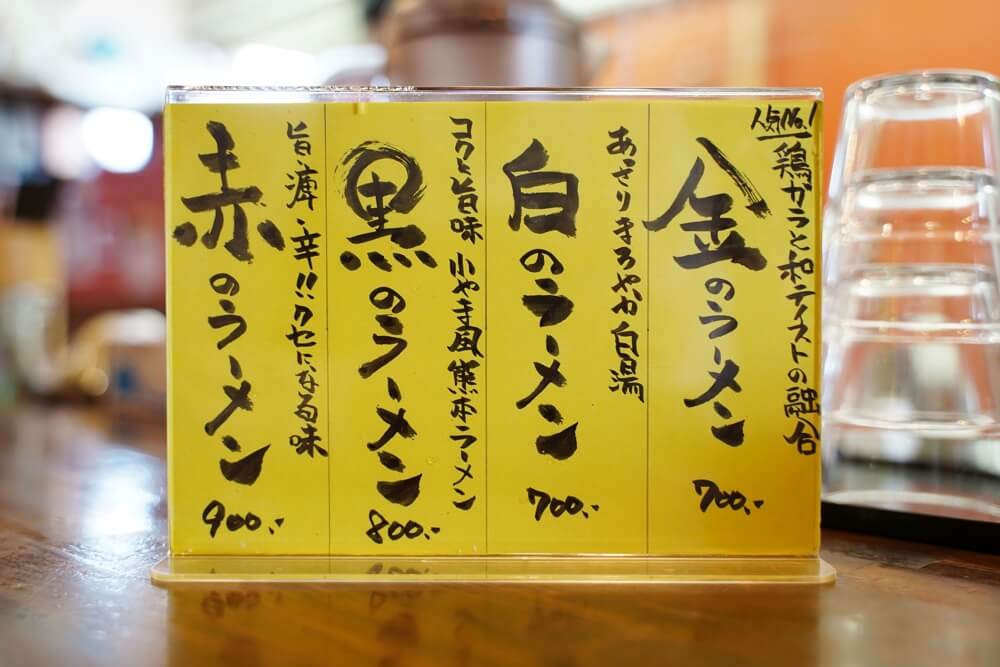 人気No.1
鶏ガラと和テイストの融合
金のラーメン
700.-
あさりまろやか白湯
白のラーメン
700.-
コクと旨味 小やき風熊本ラーメン
黒のラーメン
800.-
旨・痺・辛!!クセになる味
赤のラーメン
900.-